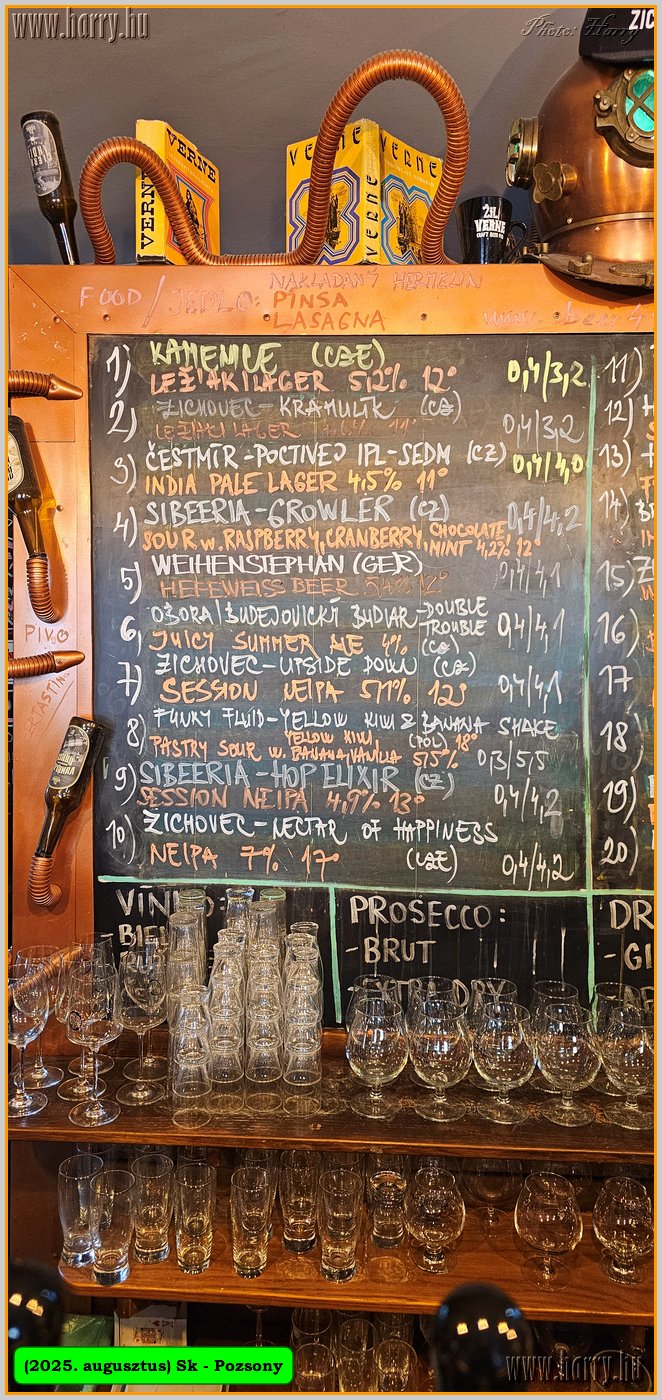 www.harry.hu
Photo: Harry
ZIC
VERNE
VERNE
VERNE
VERNE
VERNE
VERNE
CRAFT BEER
FOOD / JEDLO: NAKLADANÝ HERMELÍN
PINSA
LASAGNA
www.beer4
1) KAMENICE (CZE)
LEŽIAK|LAGER 5,2% 12° 0,4/3,2
2) ZICHOVEC - KRAHULÍK (CZ)
LAGER 11° 0,4/3,2
3) ČESTMÍR - POCTIVEJ IPL - SEDM (CZ)
INDIA PALE LAGER 4,5% 11° 0,4/4,0
4) SIBEERIA - GROWLER (CZ) 0,4/4,2
SOUR w. RASPBERRY, CRANBERRY, CHOCOLATE, MINT 4,2% 12°
5) WEIHENSTEPHAN (GER)
HEFEWEISS BEER 5,4% 12° 0,4/4,1
6) OBORA|BUDEJOVICKÝ BUDVAR - DOUBLE TROUBLE
JUICY SUMMER ALE 4% (CZ) 0,4/4,1
7) ZICHOVEC - UPSIDE DOWN (CZ)
SESSION NEIPA 5,1% 12° 0,4/4,1
8) FUNKY FLUID - YELLOW KIWI & BANANA SHAKE
PASTRY SOUR w. YELLOW KIWI, BANANA, VANILLA (POL) 5,5% 18° 0,3/5,5
9) SIBEERIA - HOP ELIXIR (CZ)
SESSION NEIPA 4,9% 13° 0,4/4,2
10) ZICHOVEC - NECTAR OF HAPPINESS
NEIPA 7% 17° (CZE) 0,4/4,2
11)
12)
13)
14)
15)
16)
17
18)
19)
20)
PIVO
VÍNO:
- BIEL
PROSECCO:
- BRUT
- EXTRA DRY
DR
- GI
(2025. augusztus) Sk - Pozsony
www.harry.hu